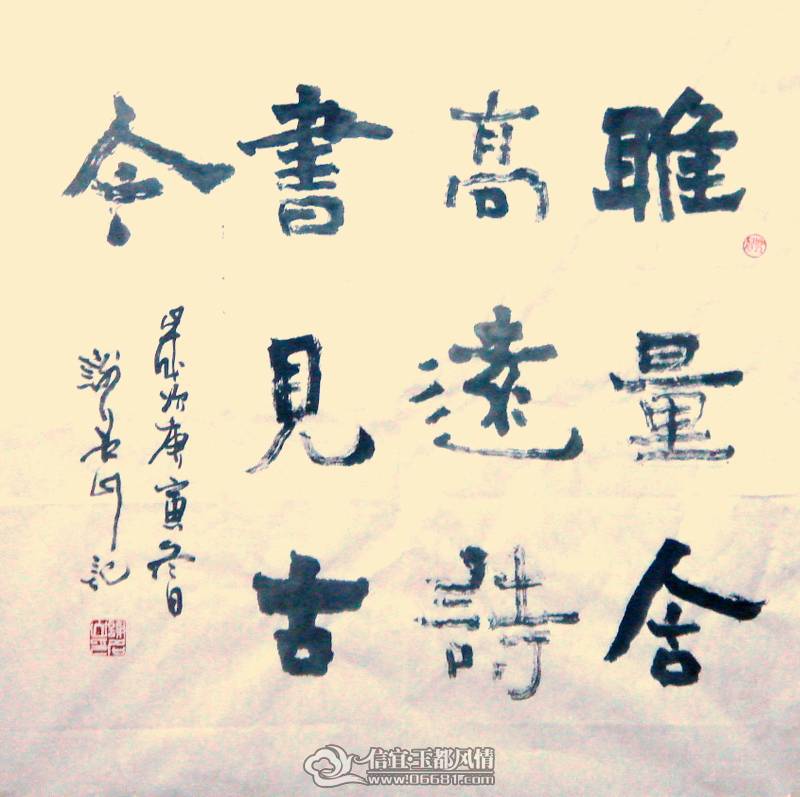 雅量含
高遠詩
書見古
今
歲次庚寅冬日
記
信宜玉都风情
www.06681.com